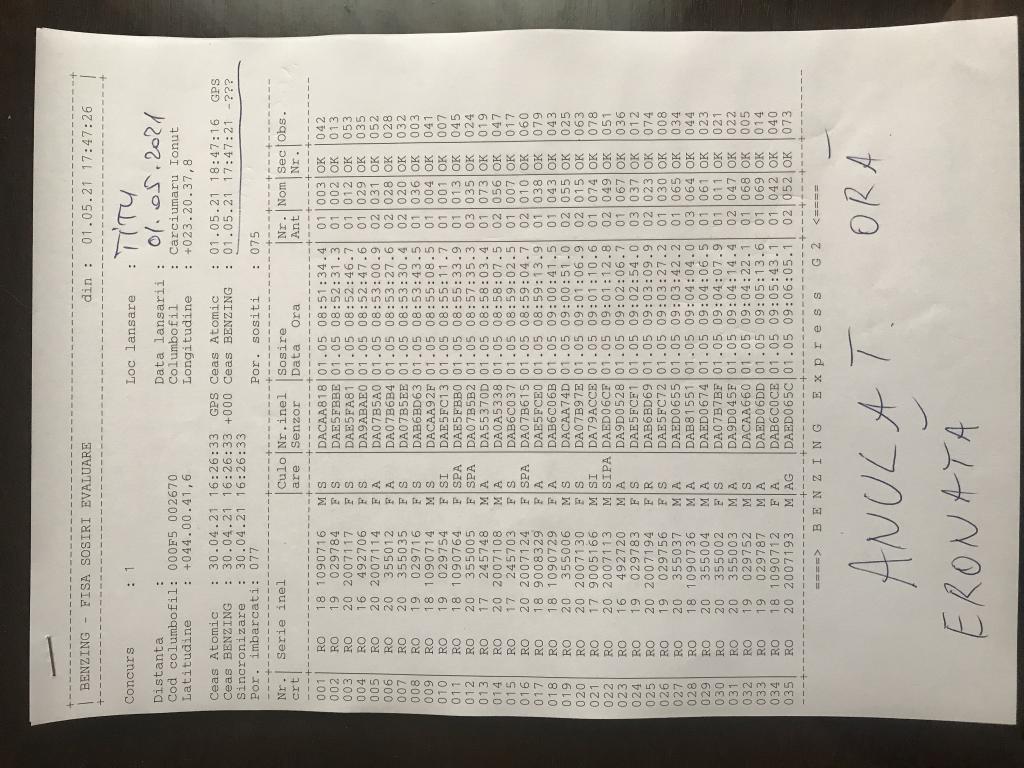 | BENZING - FISA SOSIRI EVALUARE din : 01.05.21 17:47:26 |
Concurs : 1 Loc lansare : TITU
Distanta : Data lansarii : 01.05.2021
Cod columbofil: 000F5 002670 Columbofil : Carciumaru Ionut
Latitudine : +044.00.41,6 Longitudine : +023.20.37,8
Ceas Atomic : 30.04.21 16:26:33 GPS Ceas Atomic : 01.05.21 18:47:16 GPS
Ceas BENZING : 30.04.21 16:26:33 +000 Ceas BENZING : 01.05.21 17:47:21 -???
Sincronizare : 30.04.21 16:26:33
Por. imbarcati: 077 Por. sositi : 075
Nr. | Serie inel |Culo|Nr.inel |Sosire |Nr.|Nom|Sec|Obs.
crt | |are |Senzor |Data Ora |Ant| |Nr.|
001| RO 18 1090716 M S |DACAA818|01.05 08:51:34.4| 01|003|OK |042
002| RO 19 029784 F S |DAE5FBBE|01.05 08:52:31.3| 01|002|OK |013
003| RO 20 2007117 F S |DAE5FA81|01.05 08:52:46.7| 02|012|OK |053
004| RO 16 492706 F S |DA9ABAE0|01.05 08:52:47.6| 01|029|OK |035
005| RO 20 2007114 F A |DA07B5A0|01.05 08:53:00.9| 02|031|OK |052
006| RO 20 355012 F A |DA07B6B4|01.05 08:53:27.6| 02|028|OK |028
007| RO 20 355035 F S |DA07B5EE|01.05 08:53:30.4| 02|020|OK |032
008| RO 19 029716 F S |DAB6BD63|01.05 08:53:43.5| 01|036|OK |003
009| RO 18 1090714 M S |DACAA92F|01.05 08:55:08.5| 01|004|OK |041
010| RO 19 029754 F SI |DAE5FC13|01.05 08:55:11.7| 01|001|OK |007
011| RO 18 1090764 F SPA |DAE5FBB0|01.05 08:55:33.9| 01|013|OK |045
012| RO 20 355005 F SPA |DA07B5B2|01.05 08:57:35.3| 03|035|OK |024
013| RO 17 245748 M A |DA55370D|01.05 08:58:03.4| 01|073|OK |019
014| RO 20 2007108 M A |DA0A5338|01.05 08:58:07.5| 02|056|OK |047
015| RO 17 245703 F S |DAB6C037|01.05 08:59:02.5| 01|007|OK |017
016| RO 20 2007124 F SPA |DA07B615|01.05 08:59:04.7| 02|010|OK |060
017| RO 18 9008329 F A |DAE5FCE0|01.05 08:59:13.9| 01|038|OK |079
018| RO 18 1090729 F A |DAB6C06B|01.05 09:00:41.5| 01|043|OK |043
019| RO 20 355006 M S |DACAA74D|01.05 09:00:51.0| 02|055|OK |025
020| RO 20 2007130 M S |DA07B97E|01.05 09:01:06.9| 02|015|OK |063
021| RO 17 9005166 M SI |DA79ACCE|01.05 09:01:10.6| 01|074|OK |078
022| RO 20 2007113 M SIPA|DAED06CF|01.05 09:01:12.8| 02|049|OK |051
023| RO 16 492720 M A |DA9D0528|01.05 09:02:06.7| 01|067|OK |036
024| RO 19 029783 F S |DAE5FCF1|01.05 09:02:54.0| 03|037|OK |012
025| RO 20 2007194 F R |DAB6BD69|01.05 09:03:09.9| 02|023|OK |074
026| RO 19 029756 F S |DAE5FC72|01.05 09:03:27.2| 01|030|OK |008
027| RO 20 355037 M A |DAED0655|01.05 09:03:42.2| 01|065|OK |034
028| RO 18 1090736 M A |DAB81551|01.05 09:04:04.0| 03|064|OK |044
029| RO 20 355004 M A |DAED0674|01.05 09:04:06.5| 01|061|OK |023
030| RO 20 355002 F S |DA07B7BF|01.05 09:04:07.9| 01|011|OK |021
031| RO 20 355003 M A |DA9D045F|01.05 09:04:14.4| 02|047|OK |022
032| RO 19 029752 M S |DACAA660|01.05 09:04:22.1| 01|068|OK |005
033| RO 19 029787 M A |DAED06DD|01.05 09:05:13.6| 01|069|OK |014
034| RO 18 1090712 F A |DAB6C0CE|01.05 09:05:43.1| 01|042|OK |040
035| RO 20 2007193 M AG |DAED065C|01.05 09:06:05.1| 02|052|OK |073
====> B E N Z I N G E x p r e s s G 2 <====
ANULAT. ORĂ
ERONATĂ